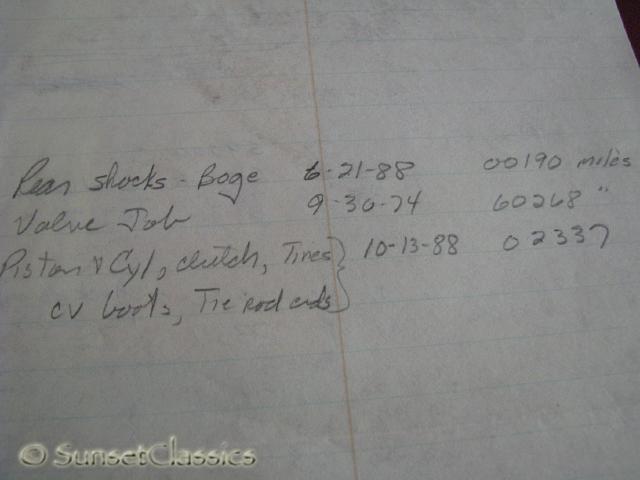 Rear shocks - Boge 6-21-88 00190 miles
Valve Job 9-30-74 60268 "
Piston & Cyl, clutch, Tires } 10-13-88 02337
CV boots, Tie rod ends
© SunsetClassics